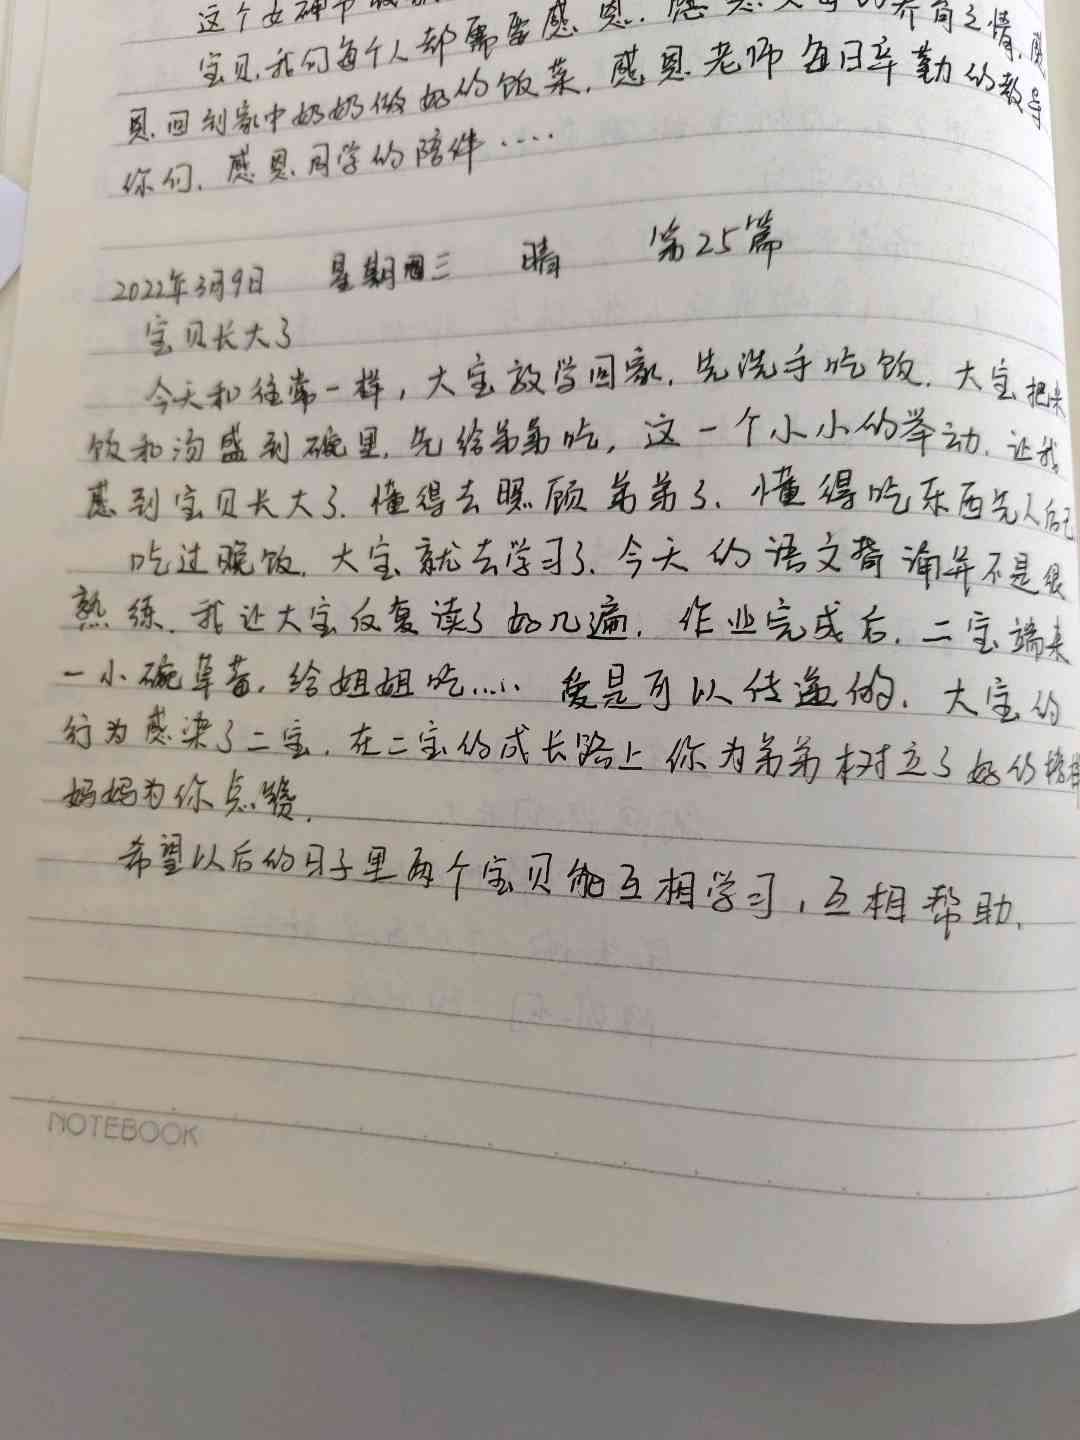 这个女神节
宝贝,我们每个人都需要感恩.感恩父母的养育之情,感
恩,回到家中奶奶做好的饭菜.感恩老师每日辛勤的教导
你们.感恩同学的陪伴·····
2022年3月9日 星期三 晴 第25篇
宝贝长大了
今天和往常一样,大宝放学回家.先洗手吃饭.大宝把米
饭和汤盛到碗里.先给弟弟吃,这一个小小的举动.让我
感到宝贝长大了.懂得去照顾弟弟了.懂得吃东西先人后己
吃过晚饭.大宝就去学习了.今天的语文背诵并不是很
熟练.我让大宝反复读了好几遍.作业完成后.二宝端来
一小碗草莓.给姐姐吃..... 爱是可以传递的.大宝的
行为感染了二宝.在二宝的成长路上你为弟弟树立了好的榜样
妈妈为你点赞.
希望以后的日子里两个宝贝能互相学习,互相帮助.
NOTEBOOK